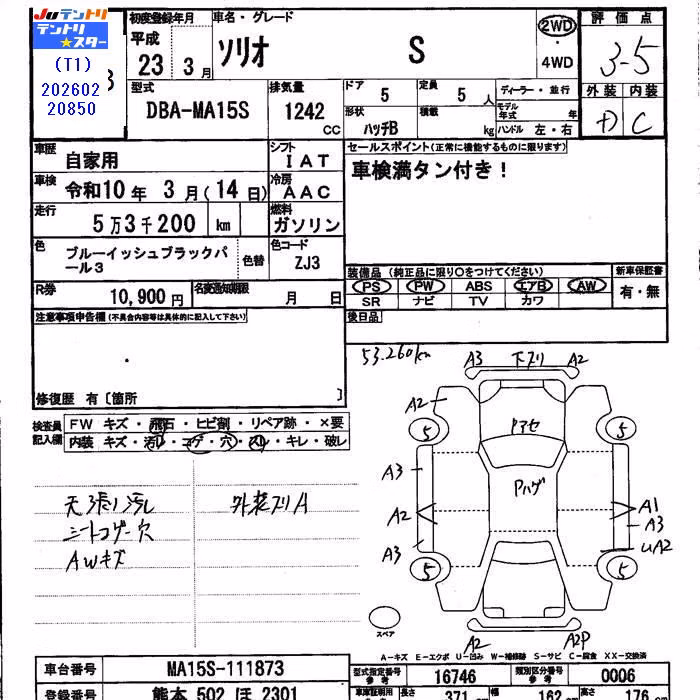 JUテントリ
テントリ
★スター
(T1)
202602
20850
初度登録年月
平成
23 3月
車名・グレード
ソリオ S
2WD
・
4WD
評価点
3.5
外装 内装
D C
型式
DBA-MA15S
排気量
1242
CC
ドア
5
定員
5人
形状
ハッチB
積載
kg
ディーラー・並行
モデル年式 年
ハンドル 左・右
車歴
自家用
シフト
IAT
セールスポイント(正常に機能するものに限ります)
車検満タン付き!
車検
令和10年 3月(14日)
冷房
AAC
走行
5万3千200 km
燃料
ガソリン
色
ブルーイッシュブラックパール3
色替
色コード
ZJ3
装備品(純正品に限り○をつけてください)
PS PW ABS エアB AW
SR ナビ TV カワ
新車保証書
有・無
R券
10,900円
名変通知期限
月 日
後日品
注意事項申告欄(不具合内容等は具体的に記入して下さい)
修復歴 有〔箇所 〕
検査員記入欄
FW キズ・飛石・ヒビ割・リペア跡・×要
内装 キズ・汚レ・コゲ・穴・スレ・キレ・破レ
天張リ汚レ
シートコゲ穴
AWキズ
外装スリA
53.260km
A3 下スリ A2
A2
5 5
Fアセ
A3
Pハゲ
A2
A1
A3
UA2
A3
5 5
スペア
A2 A2P
A-キズ E-エクボ U-凹み W-補修跡 S-サビ C-腐食 XX-交換済
車台番号
MA15S-111873
型式指定番号
参考
16746
類別区分番号
参考
0006
登録番号
熊本 502 ほ 2301
車庫証明用
参考
長さ
371 cm
幅
162 cm
高さ
176 cm